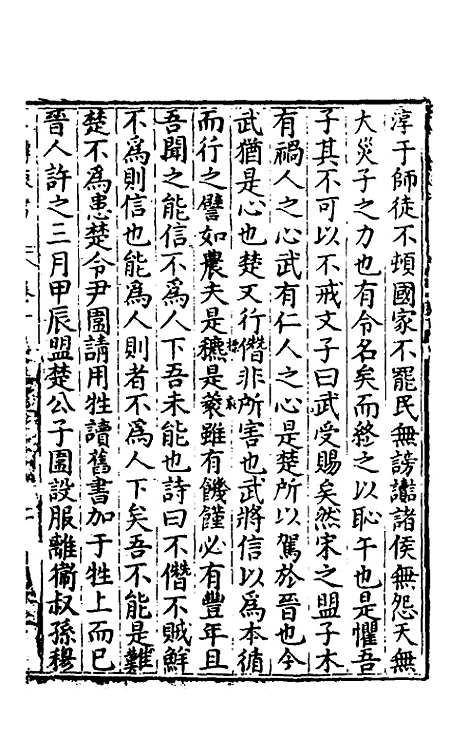 淳于師徒不頓國家不罷民無謗讟諸侯無怨天無
大災子之力也有令名矣而終之以恥午也是懼吾
子其不可以不戒文子曰武受賜矣然宋之盟子木
有禍人之心武有仁人之心是楚所以駕於晉也今
武猶是心也楚又行僭非所害也武將信以爲本循
而行之譬如農夫是穮是蔉雖有饑饉必有豐年且
吾聞之能信不爲人下吾未能也詩曰不僭不賊鮮
不爲則信也能爲人則者不爲人下矣吾不能是難
楚不爲患楚令尹圍請用牲讀舊書加于牲上而已
晉人許之三月甲辰盟楚公子圍設服離衞叔孫穆